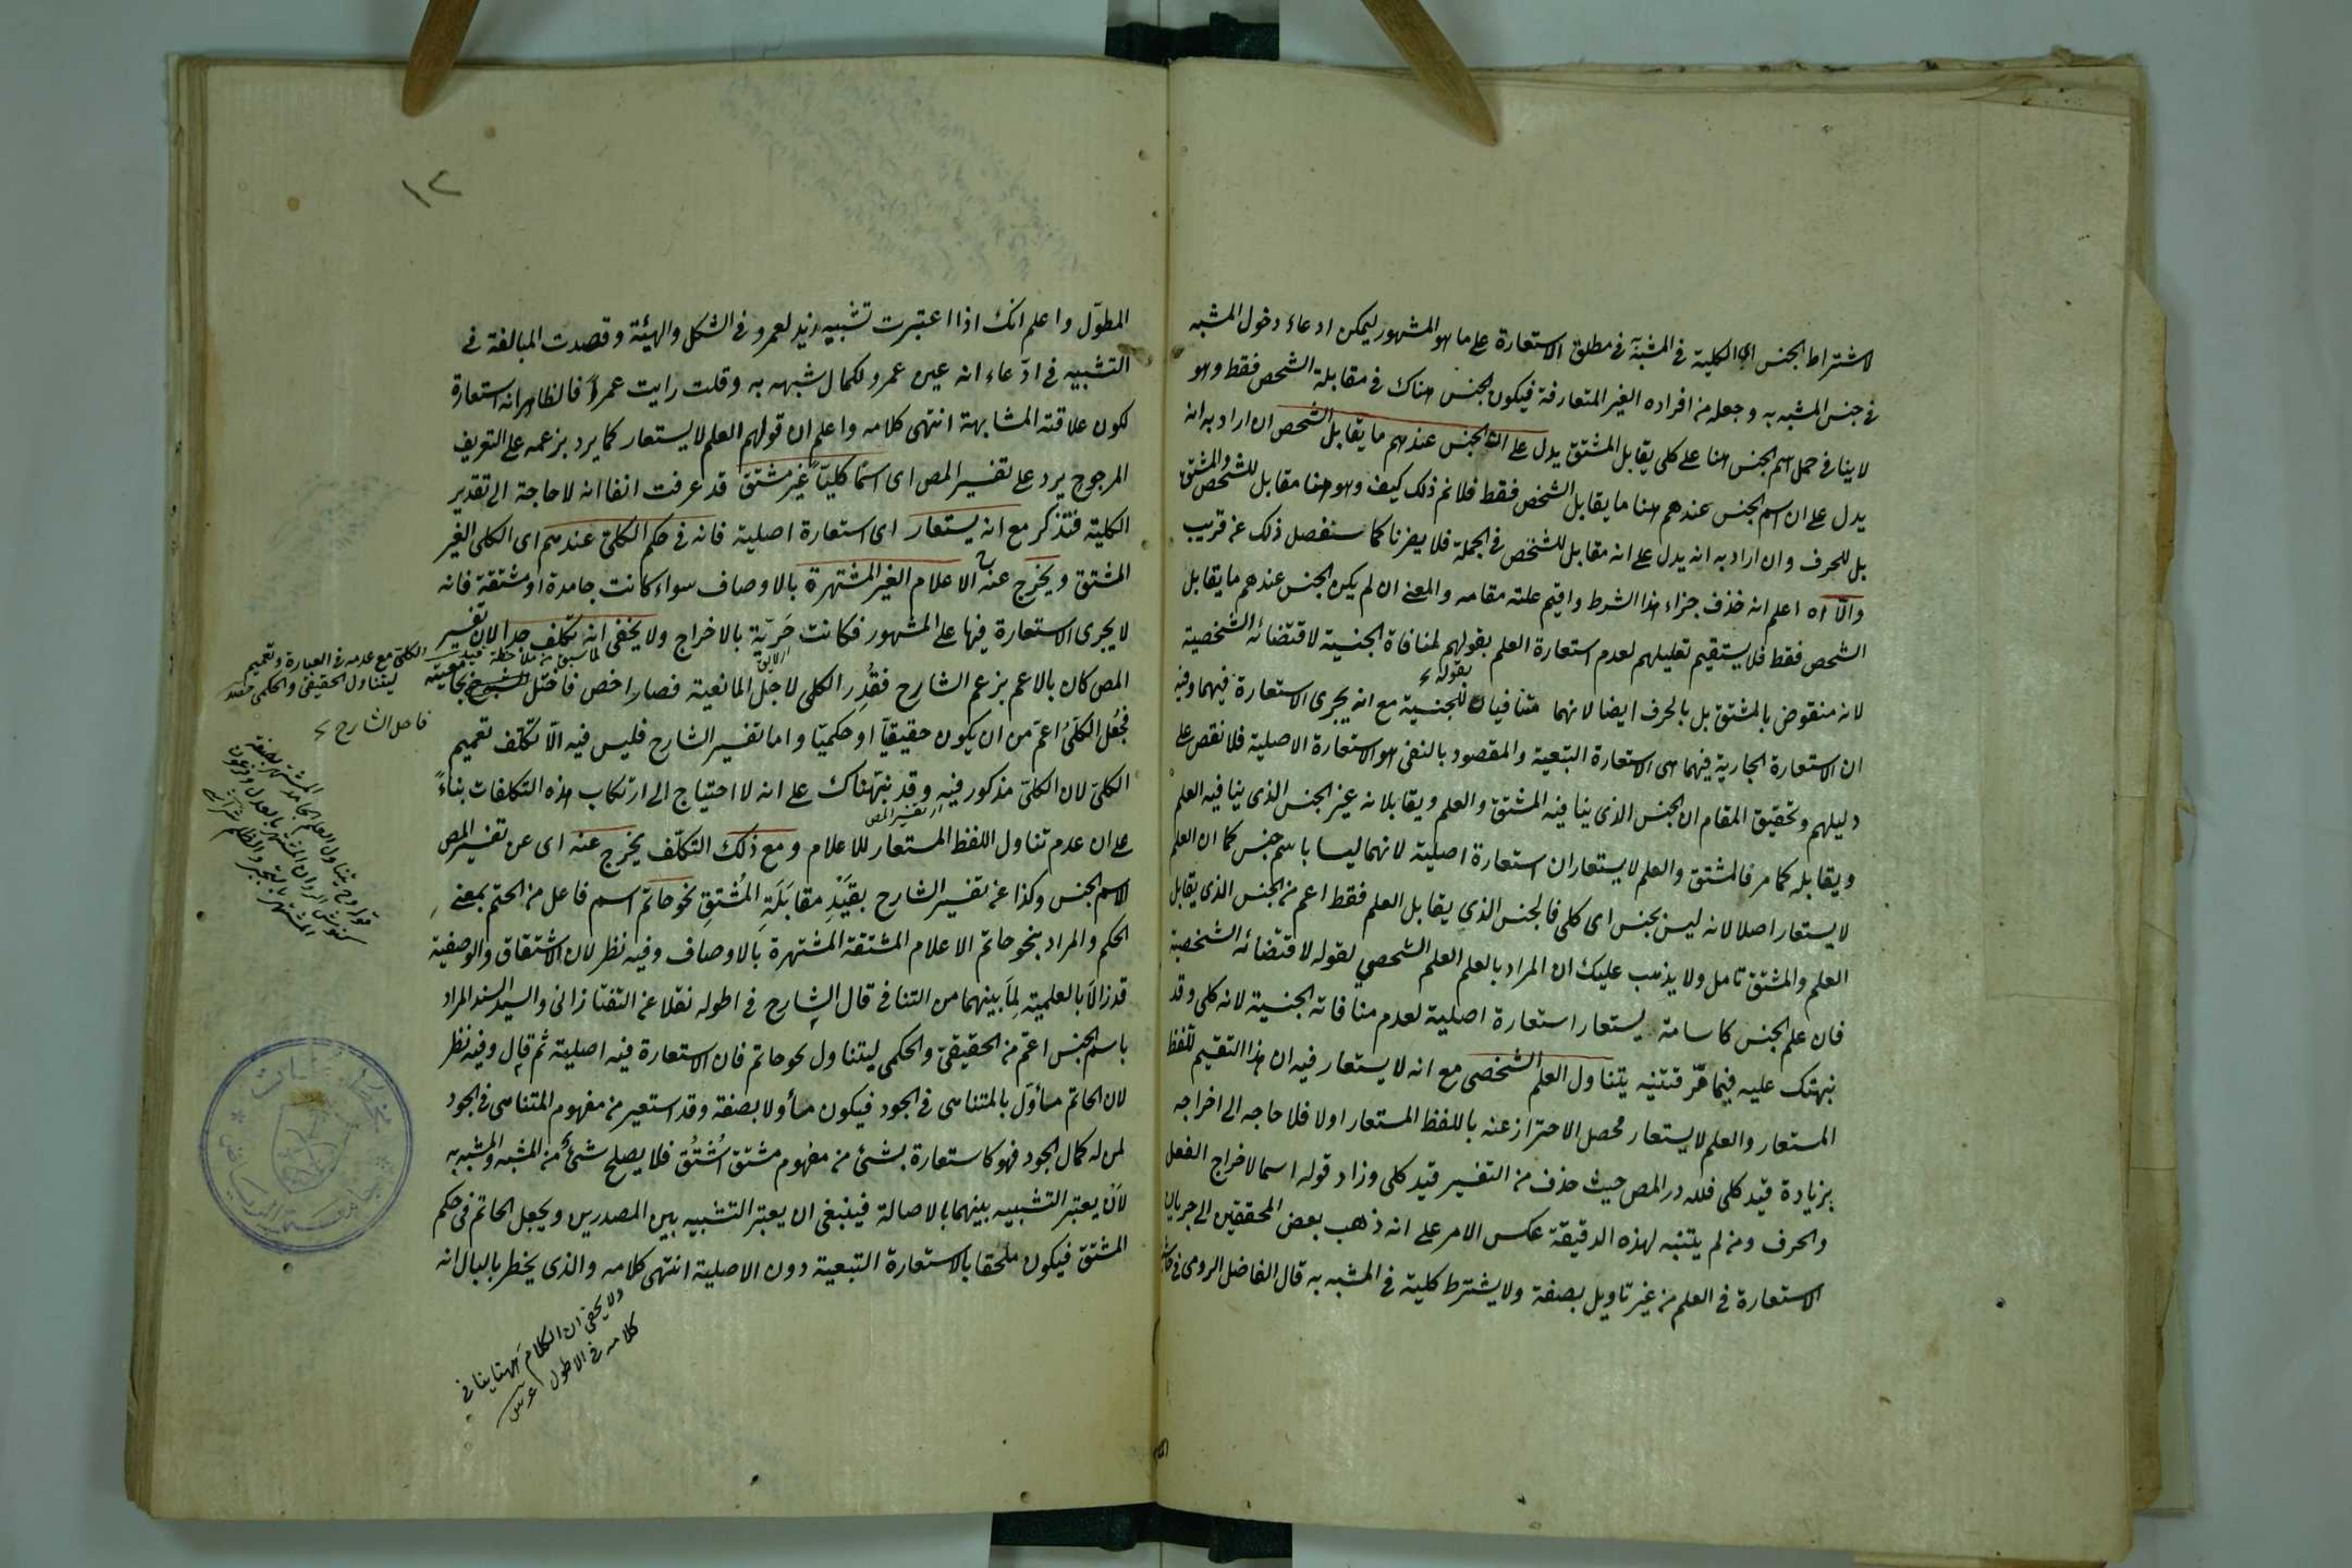 لاشتراط الجنس اي الكلية في المشبه في مطلق الاستعارة على ما هو المشهور ليمكن ادعاء دخول المشبه
في جنس المشبه به وجعله من افراده الغير المتعارفة فيكون الجنس هناك في مقابلة الشخص فقط وهو
لا ينافي حمل اسم الجنس هنا على كلي يقابل المشتق يدل على ان الجنس عندهم ما يقابل الشخص ان اراد به انه
يدل على ان اسم الجنس عندهم هنا ما يقابل الشخص فقط فلا نم ذلك كيف وهو هنا مقابل للشخص والمشتق
بل للحرف وان اراد به انه يدل على انه مقابل للشخص في الجملة فلا يضرنا كما سنفصل ذلك عن قريب
والا اه اعلم انه حذف جزاء هذا الشرط واقيم علته مقامه والمعنى ان لم يكن الجنس عندهم ما يقابل
الشخص فقط فلا يستقيم تعليلهم لعدم استعارة العلم بقولهم لمنافاة الجنسية لاقتضائه الشخصية
بقوله
لانه منقوض بالمشتق بل بالحرف ايضا لانهما متنافيان للجنسية مع انه يجري الاستعارة فيهما وفيه
ان الاستعارة الجارية فيهما هي الاستعارة التبعية والمقصود بالنفي هو الاستعارة الاصلية فلا نقض على
دليلهم وتحقيق المقام ان الجنس الذي ينافيه المشتق والعلم ويقابلانه غير الجنس الذي ينافيه العلم
ويقابله كما مر فالمشتق والعلم لا يستعاران استعارة اصلية لانهما ليسا باسم جنس كما ان العلم
لا يستعار اصلا لانه ليس بجنس اى كلى فالجنس الذي يقابل العلم فقط اعم من الجنس الذي يقابل
العلم والمشتق تامل ولا يذهب عليك ان المراد بالعلم العلم الشخصي لقوله لاقتضائه الشخصية
فان علم الجنس كاسامة يستعار استعارة اصلية لعدم منافاته الجنسية لانه كلى وقد
نبهتك عليه فيما مر فتنبه يتناول العلم الشخصي مع انه لا يستعار فيه ان هذا التقسيم للفظ
المستعار والعلم لا يستعار فحصل الاحتراز عنه باللفظ المستعار اولا فلا حاجه الى اخراجه
بزيادة قيد كلى فلله در المص حيث حذف من التفسير قيد كلى وزاد قوله اسما لاخراج الفعل
والحرف ومن لم يتنبه لهذه الدقيقة عكس الامر على انه ذهب بعض المحققين الى جريان
الاستعارة في العلم من غير تاويل بصفة ولا يشترط كلية في المشبه به قال الفاضل الرومى في
١٢
المطوّل واعلم انك اذا اعتبرت تشبيه زيد لعمرو في الشكل والهيئة وقصدت المبالغة في
التشبيه في ادّعاء انه عين عمرو لكمال شبهه به وقلت رايت عمرواً فالظاهر انه استعارة
لكون علاقته المشابهة انتهى كلامه واعلم ان قولهم العلم لا يستعار كما يرد بزعمه على التعريف
المرجوح يرد على تفسير المص اى اسمًا كليًّا غير مشتق قد عرفت انفا انه لا حاجة الى تقدير
الكلية فتذكر مع انه يستعار اى استعارة اصلية فانه في حكم الكلى عندهم اى الكلى الغير
المشتق ويخرج عنه الاعلام الغير المشتهرة بالاوصاف سواء كانت جامدة او مشتقة فانه
لا يجرى الاستعارة فيها على المشهور فكانت حَريّة بالاخراج ولا يخفى انه تكلف جدا لان تفسير
المص كان بالاعم بزعم الشارح فقُدِّر الكلى لاجل المانعية فصار اخص فاختل
فجُعل الكلىُّ اعم من ان يكون حقيقيًّا او حكميًّا واما تفسير الشارح فليس فيه الّا تكلّف تعميم
الكلىّ لان الكلىّ مذكور فيه وقد نبّهناك على انه لا احتياج الى ارتكاب هذه التكلفات بناءً
اى تفسير المص
على ان عدم تناول اللفظ المستعار للاعلام ومع ذلك التكلّف يخرج عنه اى عن تفسير المص
لاسم الجنس وكذا عن تفسير الشارح بقَيْدِ مقابَلَةِ المُشتقِ نحو حاتم اسم فاعل من الحتم بمعنى
الحكم والمراد بنحو حاتم الاعلام المشتقة المشتهرة بالاوصاف وفيه نظر لان الاشتقاق والوصفية
قد زالَا بالعلمية لِمَا بينهما من التنافى قال الشارح فى اطوله نقلا عن التفتازانى والسيد السند المراد
باسم الجنس اعمّ من الحقيقىّ والحكمى ليتناول نحو حاتم فان الاستعارة فيه اصلية ثم قال وفيه نظر
لان الحاتم مأوّل بالمتناهى فى الجود فيكون مأولا بصفة وقد استعير من مفهوم المتناهى فى الجود
لمن له كمال الجود فهو كاستعارة شئ من مفهوم مشتق اُشتُق فلا يصلح شئ من المشبه والمشبه به
لأن يعتبر التشبيه بينهما بالاصالة فينبغى ان يعتبر التشبيه بين المصدرين ويجعل الحاتم فى حكم
المشتق فيكون ملحقا بالاستعارة التبعية دون الاصلية انتهى كلامه والذى يخطر بالبال انه
الكلى مع عدمه فى العبارة وتعميم
ليتناول الحقيقى والحكمى
فاصل الشارح
ولا يخفى ان الكلام ههنا ينافى
كلامه فى الاطول